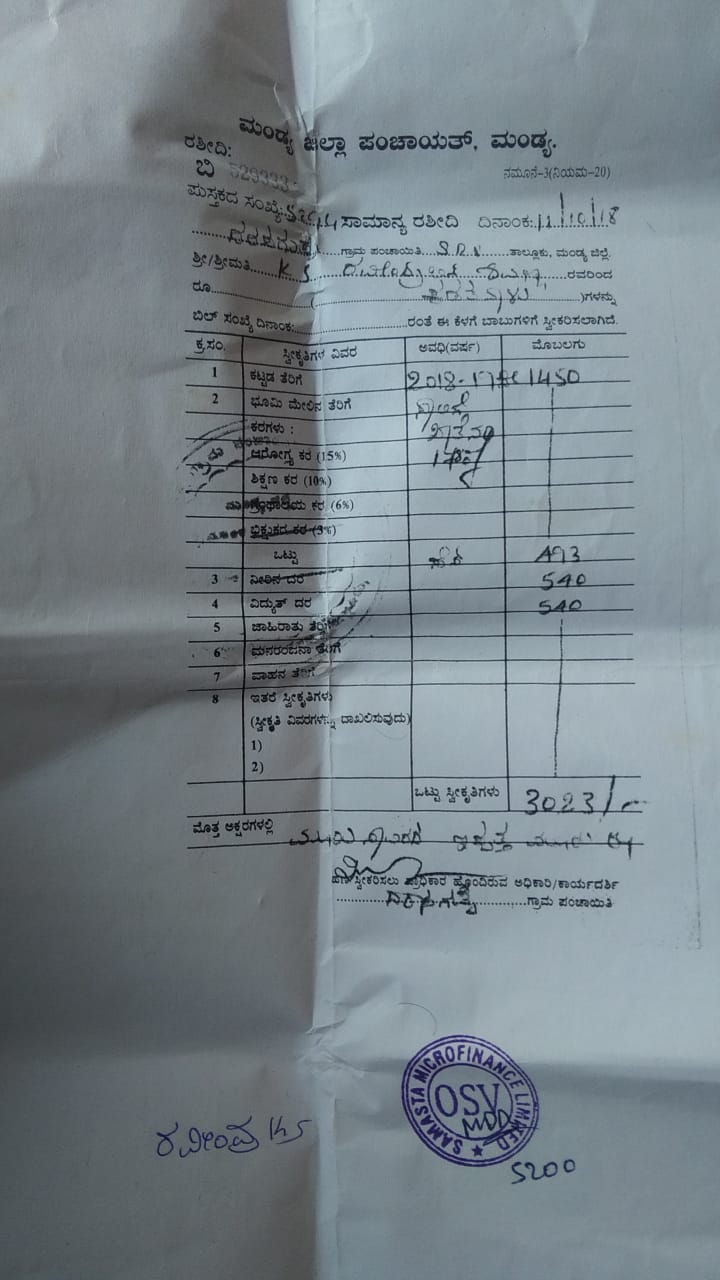 ಮಂಡ್ಯ ಜಿಲ್ಲಾ ಪಂಚಾಯತ್, ಮಂಡ್ಯ.
ರಶೀದಿ:
ನಮೂನೆ-3(ನಿಯಮ-20)
ಬಿ 529333
ಪುಸ್ತಕದ ಸಂಖ್ಯೆ: ಸಾಮಾನ್ಯ ರಶೀದಿ ದಿನಾಂಕ: 12/10/18
ಗ್ರಾಮ ಪಂಚಾಯಿತಿ ತಾಲ್ಲೂಕು, ಮಂಡ್ಯ ಜಿಲ್ಲೆ.
ಶ್ರೀ/ಶ್ರೀಮತಿ K S ರವರಿಂದ
ರೂ ( )ಗಳನ್ನು
ಬಿಲ್ ಸಂಖ್ಯೆ ದಿನಾಂಕ: ರಂತೆ ಈ ಕೆಳಗೆ ಬಾಬುಗಳಿಗೆ ಸ್ವೀಕರಿಸಲಾಗಿದೆ.
ಕ್ರ.ಸಂ. ಸ್ವೀಕೃತಿಗಳ ವಿವರ ಅವಧಿ(ವರ್ಷ) ಮೊಬಲಗು
1 ಕಟ್ಟಡ ತೆರಿಗೆ 2018-17 1450
2 ಭೂಮಿ ಮೇಲಿನ ತೆರಿಗೆ
ಕರಗಳು :
ಆರೋಗ್ಯ ಕರ (15%)
ಶಿಕ್ಷಣ ಕರ (10%)
ಗ್ರಂಥಾಲಯ ಕರ (6%)
ಭಿಕ್ಷುಕದ ಕರ (3%)
ಒಟ್ಟು 493
3 ನೀರಿನ ದರ 540
4 ವಿದ್ಯುತ್ ದರ 540
5 ಜಾಹಿರಾತು ತೆರಿಗೆ
6 ಮನರಂಜನಾ ತೆರಿಗೆ
7 ವಾಹನ ತೆರಿಗೆ
8 ಇತರೆ ಸ್ವೀಕೃತಿಗಳು
(ಸ್ವೀಕೃತಿ ವಿವರಗಳನ್ನು ದಾಖಲಿಸುವುದು)
1)
2)
ಒಟ್ಟು ಸ್ವೀಕೃತಿಗಳು 3023/-
ಮೊತ್ತ ಅಕ್ಷರಗಳಲ್ಲಿ
ಹಣ ಸ್ವೀಕರಿಸಲು ಪ್ರಾಧಿಕಾರ ಹೊಂದಿರುವ ಅಧಿಕಾರಿ/ಕಾರ್ಯದರ್ಶಿ
ಗ್ರಾಮ ಪಂಚಾಯಿತಿ
SAMASTA MICROFINANCE LIMITED
OSV
MDD
ರವೀಂದ್ರ KS
5200